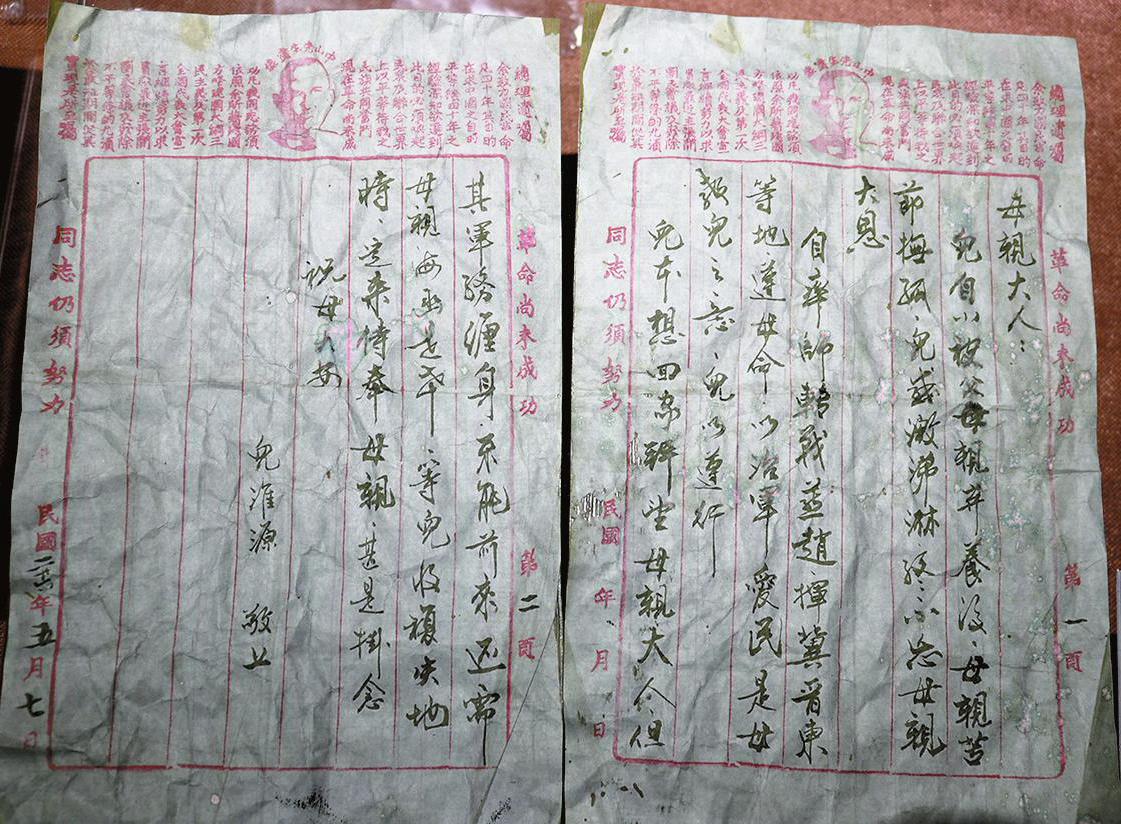 中山先生遺像
總理遺囑
余致力國民革命
凡四十年其目的
在求中國之自由
平等積四十年之
經驗深知欲達到
此目的必須喚起
民眾及聯合世界
上以平等待我之
民族共同奮鬥
現在革命尚未成
功凡我同志務須
依照余所著建國
方略建國大綱三
民主義及第一次
全國代表大會宣
言繼續努力以求
貫徹最近主張開
國民會議及廢除
不平等條約尤須
於最短期間促其
實現是所至囑
革命尚未成功 第一頁
母親大人：
兒自小被父母親弃養後、母親苦
節撫孤、兒感激涕淋終、不忘母親
大恩
自率師轉戰燕趙揮冀晋東
等地、遵母命以治軍愛民是母
教兒之志、兒以遵行
兒本想回家拜望母親大人但
同志仍須努力 民國 年 月 日
中山先生遺像
總理遺囑
余致力國民革命
凡四十年其目的
在求中國之自由
平等積四十年之
經驗深知欲達到
此目的必須喚起
民眾及聯合世界
上以平等待我之
民族共同奮鬥
現在革命尚未成
功凡我同志務須
依照余所著建國
方略建國大綱三
民主義及第一次
全國代表大會宣
言繼續努力以求
貫徹最近主張開
國民會議及廢除
不平等條約尤須
於最短期間促其
實現是所至囑
革命尚未成功 第二頁
其軍務纏身、不能前來还需
母親海函是幸、等兒收複失地
時、定來侍奉母親、甚是掛念
祝母大安
兒淮源 敬上
同志仍須努力 民國二六年五月七日